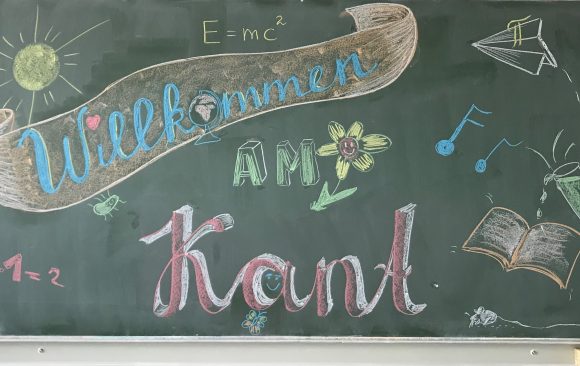 E=mc²
π
Willkommen
AM
Kant
1=2